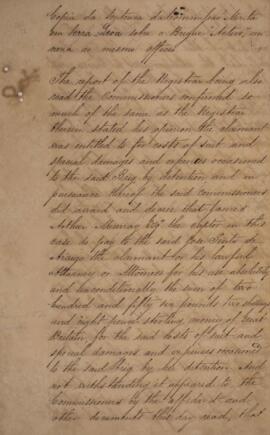 Copia da Sentença da Commissão Mixta
em Serra Leoa sobre o Brigue "Activo," in
ma ao mesmo officio
The report of the Registrar being also
read the Commissioners confirmed so
much of the same as the Registrar
therein stated his opinion the claimant
was entitled to for costs of suit and
special damages and expences occasioned
to the said Brig by detention and in
pursuance thereof the said Commissioners
did award and decree that James
Arthur Murray Esqr the captor in this
case do pay to the said José Pinto de
Araujo the claimant or his lawful
Attorney or Attornies for his use absolutely
and unconditionally the sum of two
hundred and fifty six pounds five shillings
and eight pence sterling money of Great
Britain for the said costs of suit and
special damages and expences occasioned
to the said Brig by her detention. And
notwithstanding it appeared to the
Commissioners by the affidavit and
other documents this day read, that